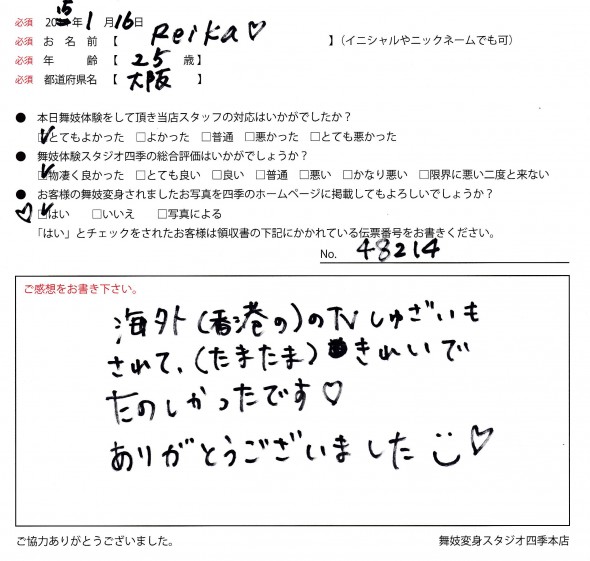 必須 2015年1月16日
必須 お名前【 Reika♡ 】(イニシャルやニックネームでも可)
必須 年齢【 25 歳】
必須 都道府県名【 大阪 】
● 本日舞妓体験をして頂き当店スタッフの対応はいかがでしたか?
☑とてもよかった □よかった □普通 □悪かった □とても悪かった
● 舞妓体験スタジオ四季の総合評価はいかがでしょうか?
☑物凄く良かった □とても良い □良い □普通 □悪い □かなり悪い □限界に悪い二度と来ない
● お客様の舞妓変身されましたお写真を四季のホームページに掲載してもよろしいでしょうか?
♡☑はい □いいえ □写真による
「はい」とチェックをされたお客様は領収書の下記にかかれている伝票番号をお書きください。
No. 48214
ご感想をお書き下さい。
海外(香港の)のTVしゅざいも
されて、(たまたま)きれいで
たのしかったです♡
ありがとうございました☺♡
ご協力ありがとうございました。 舞妓変身スタジオ四季本店